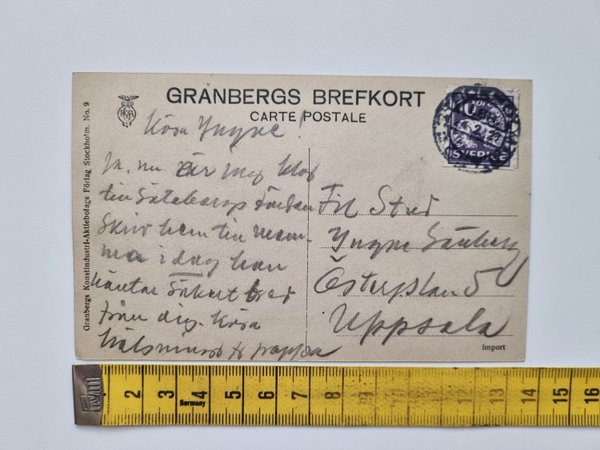 GRANBERGS BREFKORT
CARTE POSTALE
Granbergs Konstindustri-Aktiebolags Förlag Stockholm. No. 9
SVERIGE
Kära Yngve!
Ja, nu är jag
till
Skriv hem till mam-
ma i dag hon
väntar säkert bref
från dig. Kära
hälsningar fr pappa
Till Stud
Yngve
Österplan 5
Uppsala
Import
Germany
2 3 4 5 6 7 8 9 10 11 12 13 14 15 16